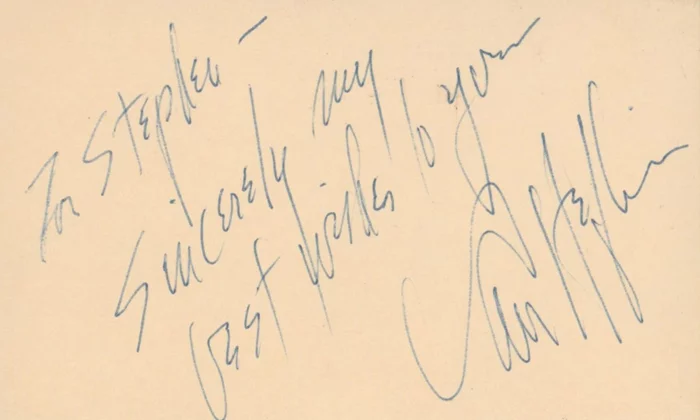 For Stephen –
Sincerely my
best wishes to you
Van Heflin